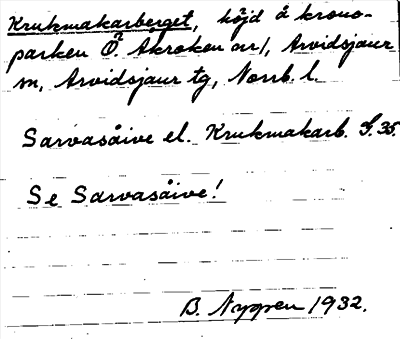 Krukmakarberget, höjd å krono-
parken Ö. Åkroken nr 1, Arvidsjaur
sn, Arvidsjaur tg, Norrb. l.
Sarvasåive el. Krukmakarb. S. 35.
Se Sarvasåive!
B. Nygren 1932.